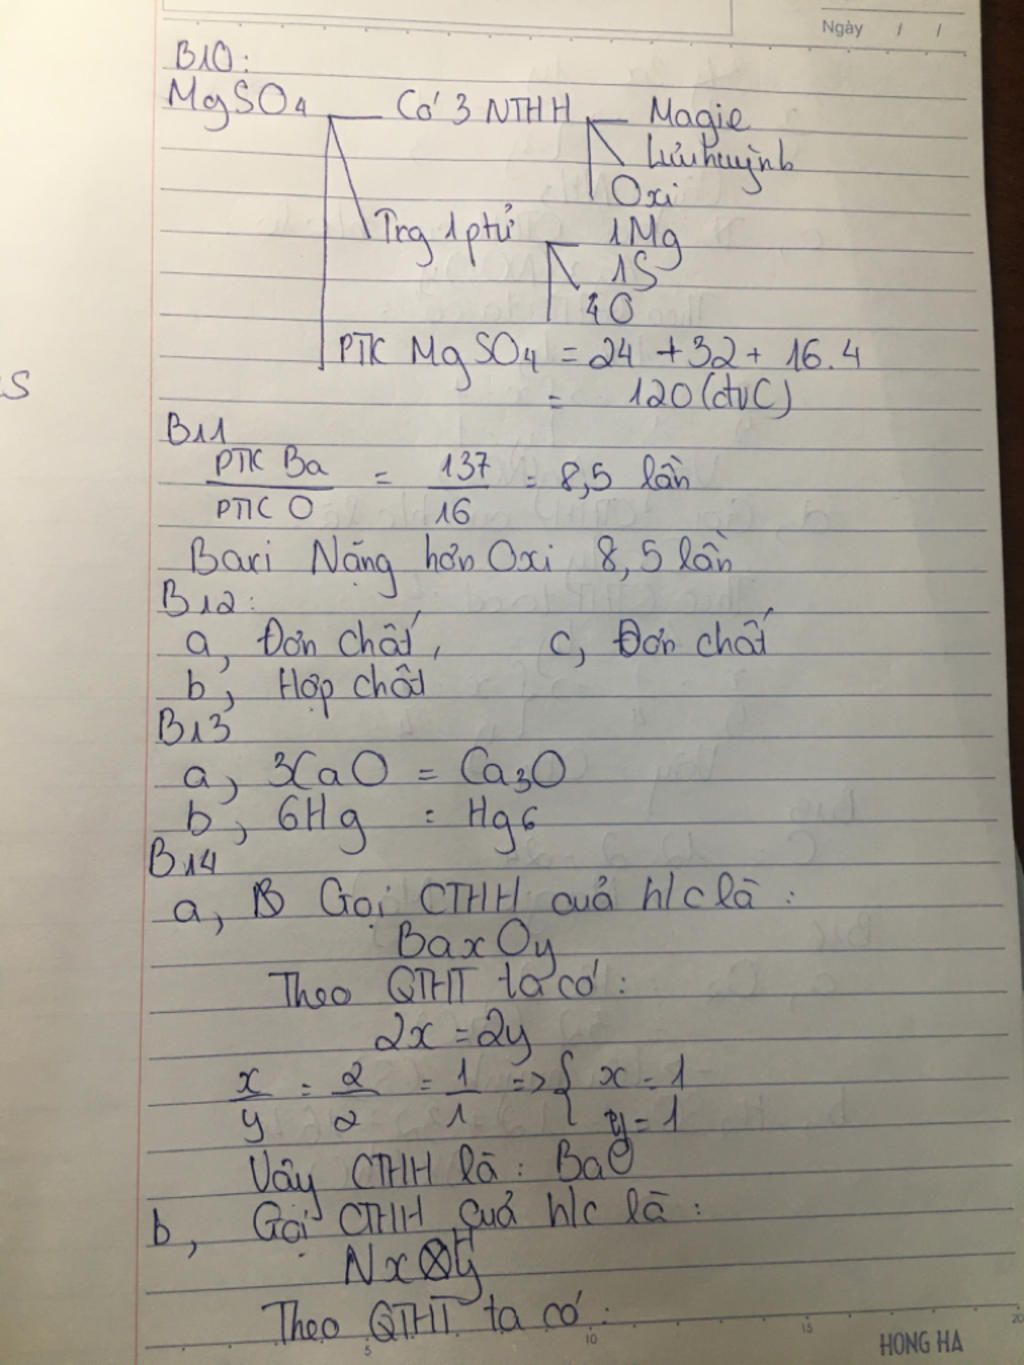 Ngày / /
B10:
MgSO4 Có 3 NTHH Magie
Lưu huỳnh
Oxi
Trg 1 ptử 1Mg
1S
4O
PTK MgSO4 = 24 + 32 + 16.4
= 120 (đvC)
S
B11
PTK Ba / PTK O = 137 / 16 = 8,5 lần
Bari Nặng hơn Oxi 8,5 lần
B12:
a, Đơn chất, c, Đơn chất
b, Hợp chất
B13
a, 3CaO = Ca3O
b, 6Hg = Hg6
B14
a, Gọi CTHH cuả h/c là:
BaxOy
Theo QTHT ta có:
2x = 2y
x/y = 2/2 = 1/1 => { x = 1
y = 1
Vậy CTHH là: BaO
b, Gọi CTHH cuả h/c là:
NxHy
Theo QTHT ta có:
5 10 15 20
HONG HA